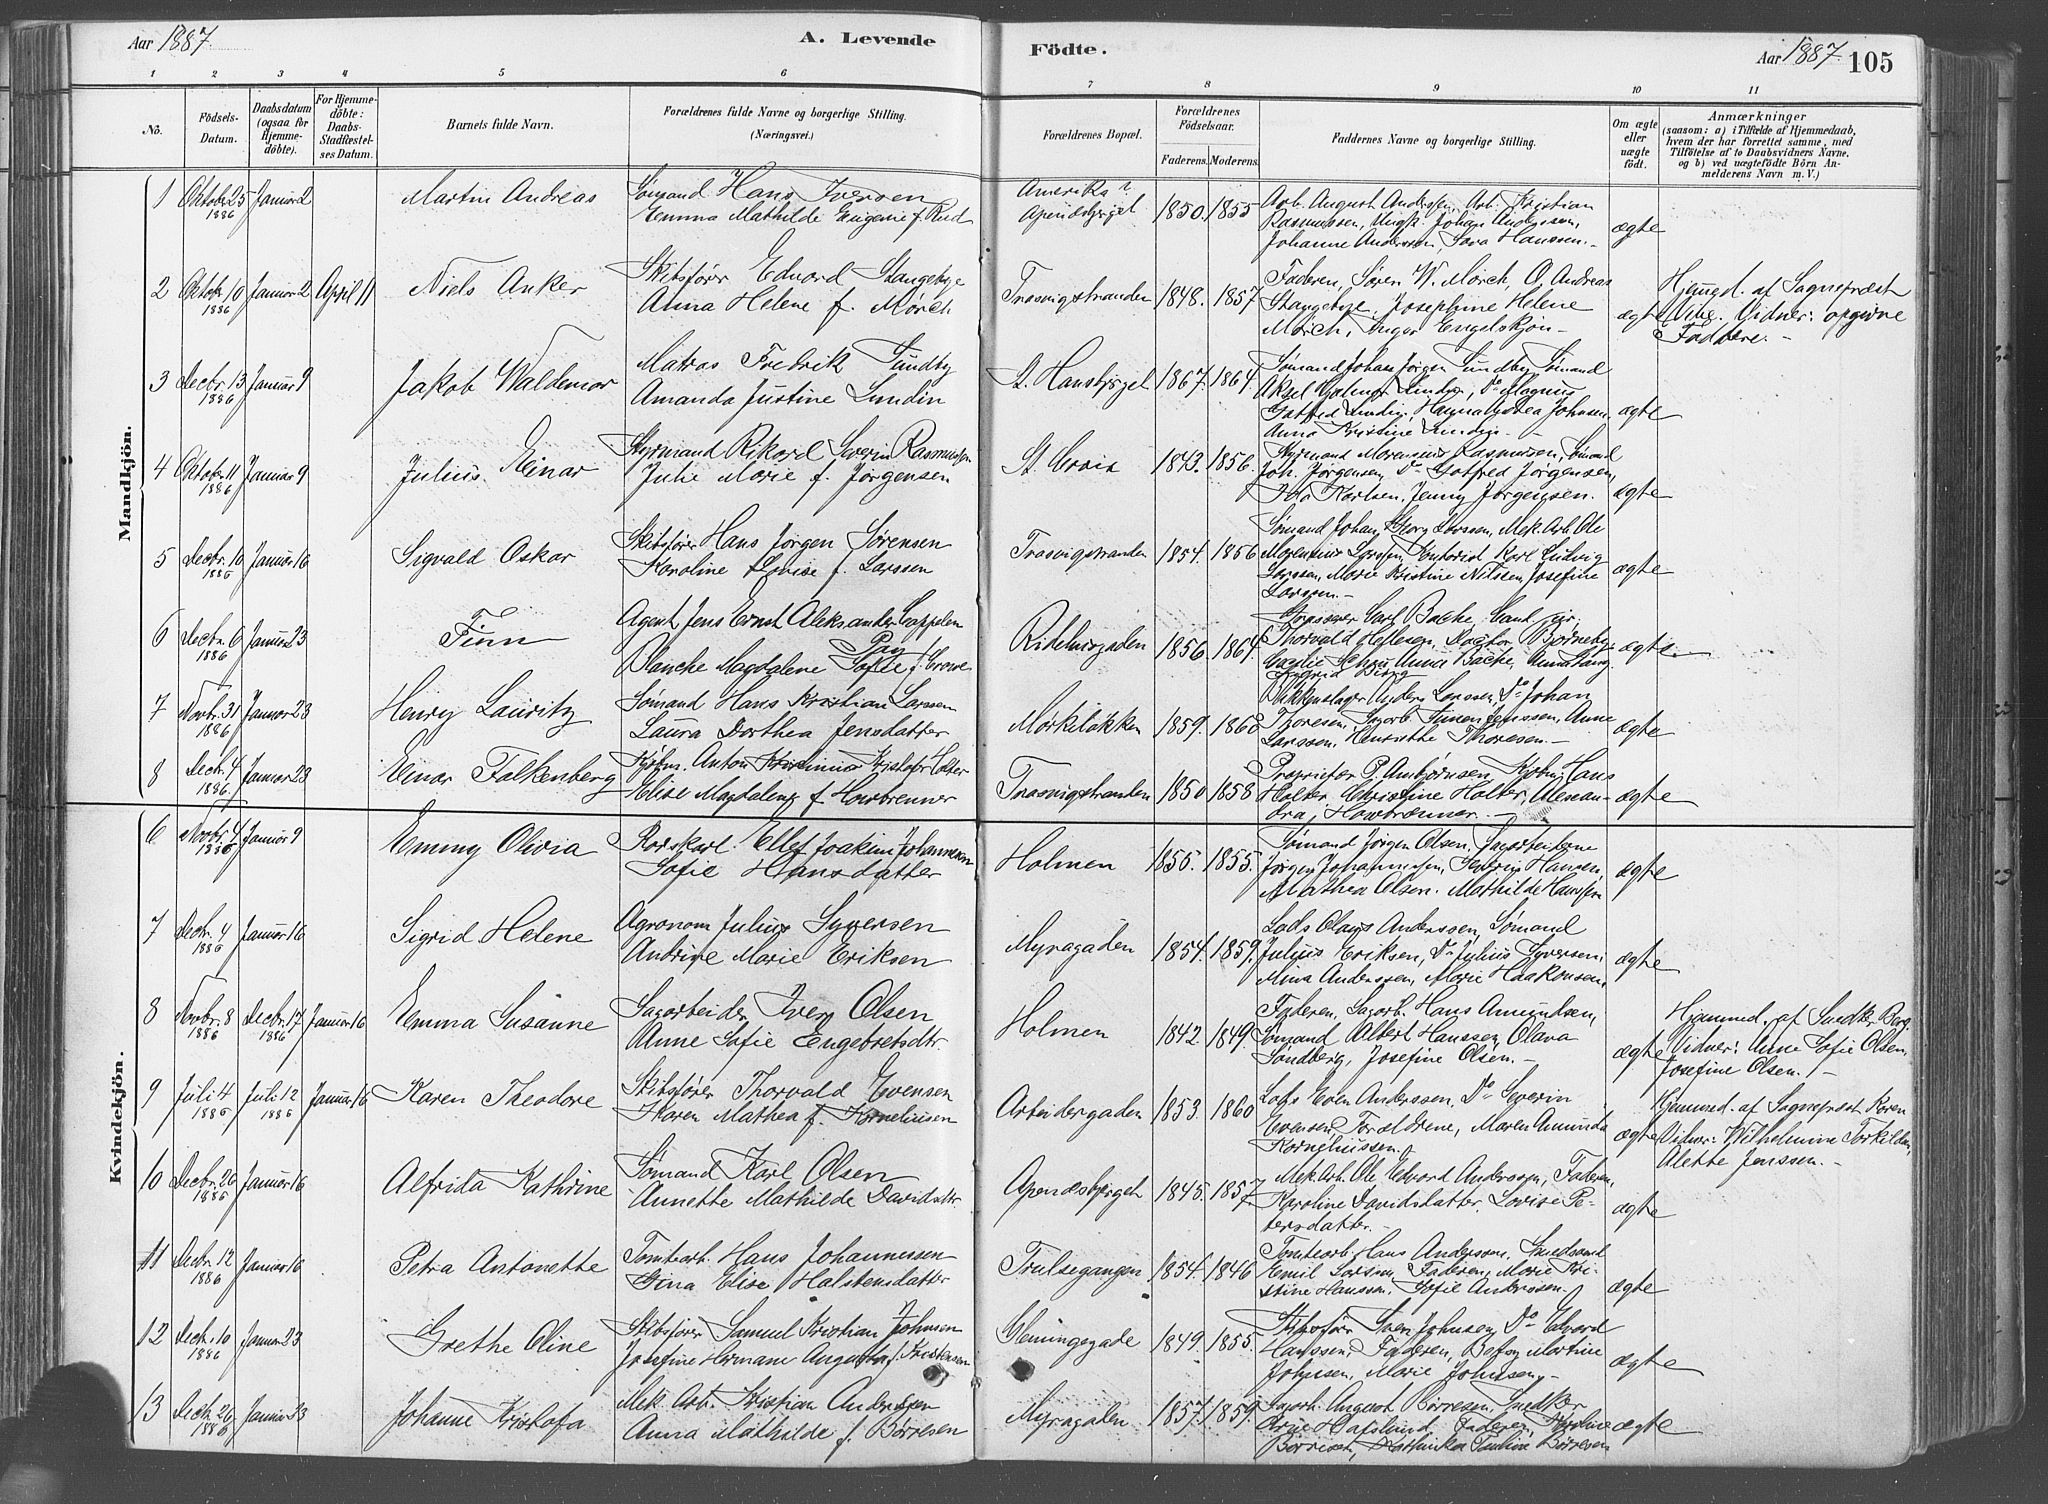 Aar 1887.
A. Levende
Födte.
Aar 1887.
105
1 2 3 4 5 6 7 8 9 10 11
No.
Födsels-Datum.
Daabsdatum (ogsaa for Hjemme-döbte).
For Hjemme-döbte: Daabs-Stadfæstel-ses Datum.
Barnets fulde Navn.
Forældrenes fulde Navne og borgerlige Stilling.
(Næringsvei.)
Forældrenes Bopæl.
Forældrenes Födselsaar.
Faderens. Moderens.
Faddernes Navne og borgerlige Stilling.
Om ægte eller uægte født.
Anmærkninger
(saasom: a) i Tilfælde af Hjemmedaab, hvem der har forrettet samme, med Tilföielse af to Daabsvidners Navne, og b) ved uægtefödte Börn An-melderens Navn m. V.)
Mandkjön.
1 Oktober 25 1886 Januar 2 Martin Andreas
Sömand Hans Iversen
Emma Mathilde Eugenie f. Rud
Amerika?
Apenæsbjerget 1850. 1855
Arb. August Anderssen, Arb. Kristian
Rasmussen, Ungk. Johan Anderssen,
Johanne Anderssen, Sara Hanssen.
ægte
2 Oktober 10 1886 Januar 2 April 11 Niels Anker
Skibsfører Edvard Stangebye
Anna Helene f. Mørch
Trosvigstranden 1848. 1857
Faderen, Søren W. Mørch, O. Andreas
Stangebye, Josephine Helene
Mörch, Inger Engelskjön
ægte
Hjemmed. af Sognepræst
Vidner: opgivne
Faddere.
3 Decbr. 13 1886 Januar 9 Jakob Waldemar
Matros Fredrik Sundby
Amanda Justine Lundin
St. Hansbjerget 1867. 1864
Sømand Johan Jørgen Sundby, Sømand
Anna Kristine
ægte
4 Oktober 11 1886 Januar 9 Julius Einar
Styrmand Rikard Severin Rasmussen
Julie Marie f. Jørgensen
St. Croix 1843. 1856.
Styrmand Morenius Rasmussen, Sømand
Joh. Jørgensen, Do Gotfred Jørgensen,
Karlsen, Jenny Jørgensen.
ægte
5 Decbr. 10 1886 Januar 16 Sigvald Oskar
Skibsfører Hans Jørgen Sørensen
Karoline Lovise f. Larssen
Trosvigstranden 1854. 1856
Sømand Johan Georg Larssen, Mek. Arb. Ole
Morentius Larssen, Karl Ludvig
Larssen, Marie Kristine Nilssen, Josefine
Larssen.
ægte
6 Decbr. 6 1886 Januar 23 Finn
Agent Jens Ernst Aleksander Cappelen
Blanche Magdalene Pay Sofie f. Crowe
Ridehusgaden 1856. 1864
Carl Bache, Cand. jur.
Thorvald Heftesen, Doctor Bjørneby,
Anna Bache,
ægte
7 Novbr. 31 1886 Januar 23 Henry Lauritz
Sömand Hans Kristian Larssen
Laura Dorthea Jensdatter
Mørkeløkken 1859. 1860
Blikkenslager Anders Larssen, Do Johan
Thoresen, Sagarb. Simen Jenssen, Anne
Larssen, Thoresen.
ægte
8 Decbr. 4 1886 Januar 23 Einar Falkenberg
Kjøbm. Anton Kristofer Holter
Elise Magdalena f. Howbrenner
Trosvigstranden 1850 1858
Proprietær P. Ambjørnsen, Kjøbm. Hans
Holter, Christine Holter, Alexan-
dra Howbrenner.
ægte
Kvindekjön.
6 Novbr. 4 1886 Januar 9 Emmy Olivia
Rorskarl Ellef Joakim Johannessen
Sofie Hansdatter
Holmen 1855. 1855.
Sømand Jørgen Olsen, Sagarbeiderne
Jørgen Johannessen, Severin Hansen,
Mathea Olsen, Mathilde Hanssen
ægte
7 Decbr. 4 1886 Januar 16 Sigrid Helene
Agronom Julius Syversen
Andrine Marie Eriksen
Myragaden 1854. 1859.
Lods Olaus Anderssen, Sømand
Julius Eriksen, Do Julius Syversen,
Mina Anderssen, Marie Haakonsen,
ægte
8 Novbr. 8 1886 Decbr. 17 1886 Januar 16 Emma Susanne
Sagarbeider Iver Olsen
Anne Sofie Engebretsdtr.
Holmen 1842 1849.
Faderen, Sagarb. Hans Amundsen,
Sømand Albert Hanssen, Olava
Sandberg, Josefine Olsen.
ægte
Hjemmed. af Snedker Berg.
Vidner: Anne Sofie Olsen,
Josefine Olsen.
9 Juli 4 1886 Juli 12 1886 Januar 16 Karen Theodore
Skibsfører Thorvald Evensen
Karen Mathea f. Korneliussen
Arbeidergaden 1853. 1860
Lods Even Anderssen, Do Severin
Evensen, Forældrene, Maren Amunda
Korneliussen
ægte
Hjemmed. af Sognepræst Koren
Vidner: Wilhelmine Torkildsen,
Alette Jenssen.
10 Decbr. 26 1886 Januar 16 Alfrida Kathrine
Sömand Karl Olsen
Annette Mathilde Davidsdtr.
Apenæsbjerget 1845. 1857.
Mek. Arb. Ole Edvard Anderssen, Faderen,
Karoline Davidsdatter, Lovise Pe-
tersdatter.
ægte
11 Decbr. 12 1886 Januar 16 Petra Antonette
Tomtearb. Hans Johannessen
Gina Elise Halstensdatter
Trulsegangen 1854. 1846
Tomtearb. Hans Anderssen, Smedsvend
Emil Larssen, Faderen, Marie Kri-
stine Hanssen, Sofie Anderssen.
ægte
12 Decbr. 10 1886 Januar 23 Grethe Oline
Skibsfører Samuel Kristian Johnsen
Josefine Hermane Augusta f. Kristensen
Glemmingegade 1849. 1855.
Skibsfør. Sven Johnsen, Do Edvard
Hanssen, Faderen, Betsy Martine
Johnsen, Marie Johnsen.
ægte
13 Decbr. 26 1886 Januar 23 Johanne Kristofa
Mek. Arb. Kristian Anderssen
Anna Mathilde f. Börresen
Myragaden 1857. 1859.
Sagarb. August Børresen, Snedker
Arne Hafslund, Faderen, Karoline
Børresen, Kathinka Pauline Børresen
ægte